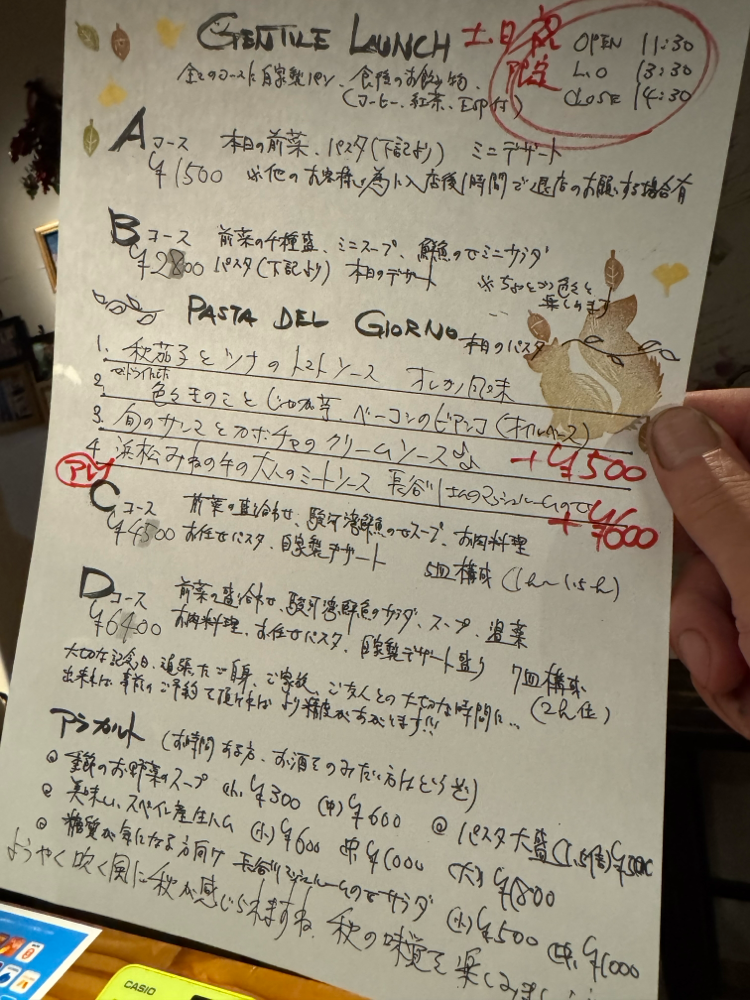 GENTILE LUNCH 土日祝限定
OPEN 11:30
L.O 13:30
CLOSE 14:30
全てのコースに自家製パン、食後のお飲み物、
(コーヒー、紅茶、ESP付)
Aコース 本日の前菜、パスタ(下記より) ミニデザート
¥1500 ※他のお客様の為に入店後1時間で退店のお願いする場合有
Bコース 前菜の千種盛、ミニスープ、鮮魚のせミニサラダ
¥2800 パスタ(下記より) 本日のデザート ※ちょっとづつ色々と楽しめます
PASTA DEL GIORNO 本日のパスタ
1. 秋茄子とツナのトマトソース オレガノ風味
2. 色々きのことじゃが芋、ベーコンのビアンコ(オイルベース)
3. 旬のサンマとカボチャのクリームソース♪ +¥500
4. 浜松みねの牛の大人のミートソース 長谷川さんのマッシュルームのせ +¥600
Cコース 前菜の盛合わせ、駿河湾鮮魚のせスープ、お肉料理
¥4500 お任せパスタ、自家製デザート 5皿構成(1h〜1.5h)
Dコース 前菜の盛合わせ、駿河湾鮮魚のサラダ、スープ、温菜
¥6400 お肉料理、お任せパスタ、自家製デザート盛り 7皿構成
(2h位)
大切な記念日、頑張たご自身、ご家族、ご友人との大切な時間に…
出来れば事前のご予約て頂ければより精度があがります!!
アラカルト (お時間ある方、お酒をのみたい方はどうぞ)
@ 季節のお野菜のスープ (小)¥300 (中)¥600 @ パスタ大盛(1.5倍)¥500
@ 美味しいスペイン産生ハム (小)¥600 中¥1000 (大)¥1800
@ 糖質が気になる方向け 長谷川マッシュルームのせサラダ (小)¥500 中¥1000
ようやく吹く風に秋が感じられますね、秋の味覚を楽しみましょ
CASIO